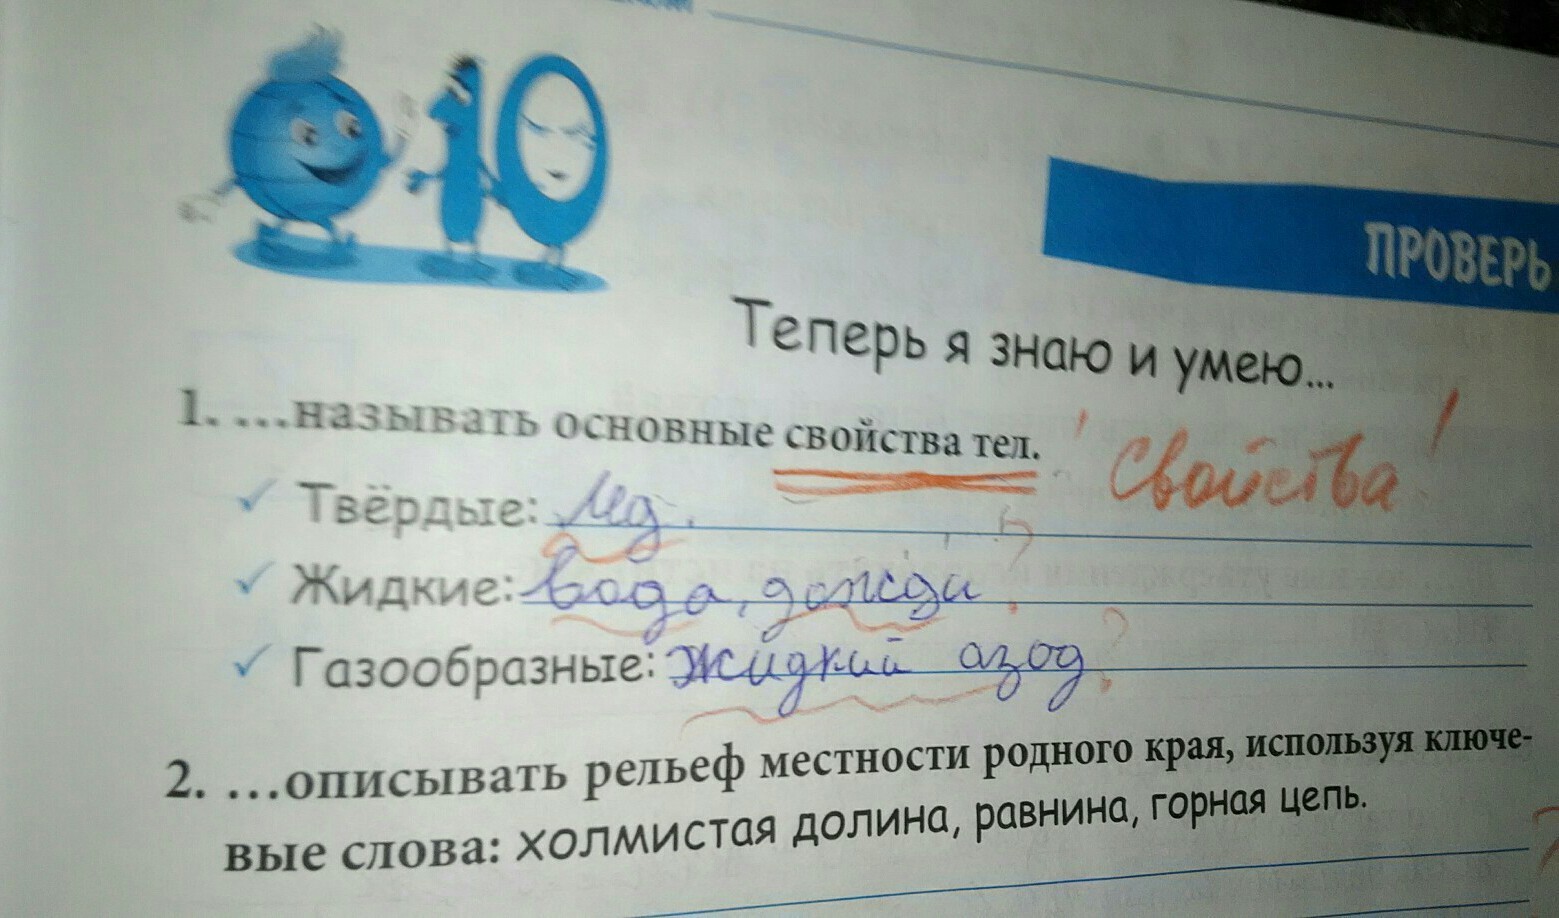 10
ПРОВЕРЬ
Теперь я знаю и умею...
1. ...называть основные свойства тел. ! Свойства!
Твёрдые: лёд.
Жидкие: вода, дожди ?
Газообразные: жидкий азод ?
2. ...описывать рельеф местности родного края, используя ключе-
вые слова: холмистая долина, равнина, горная цепь.